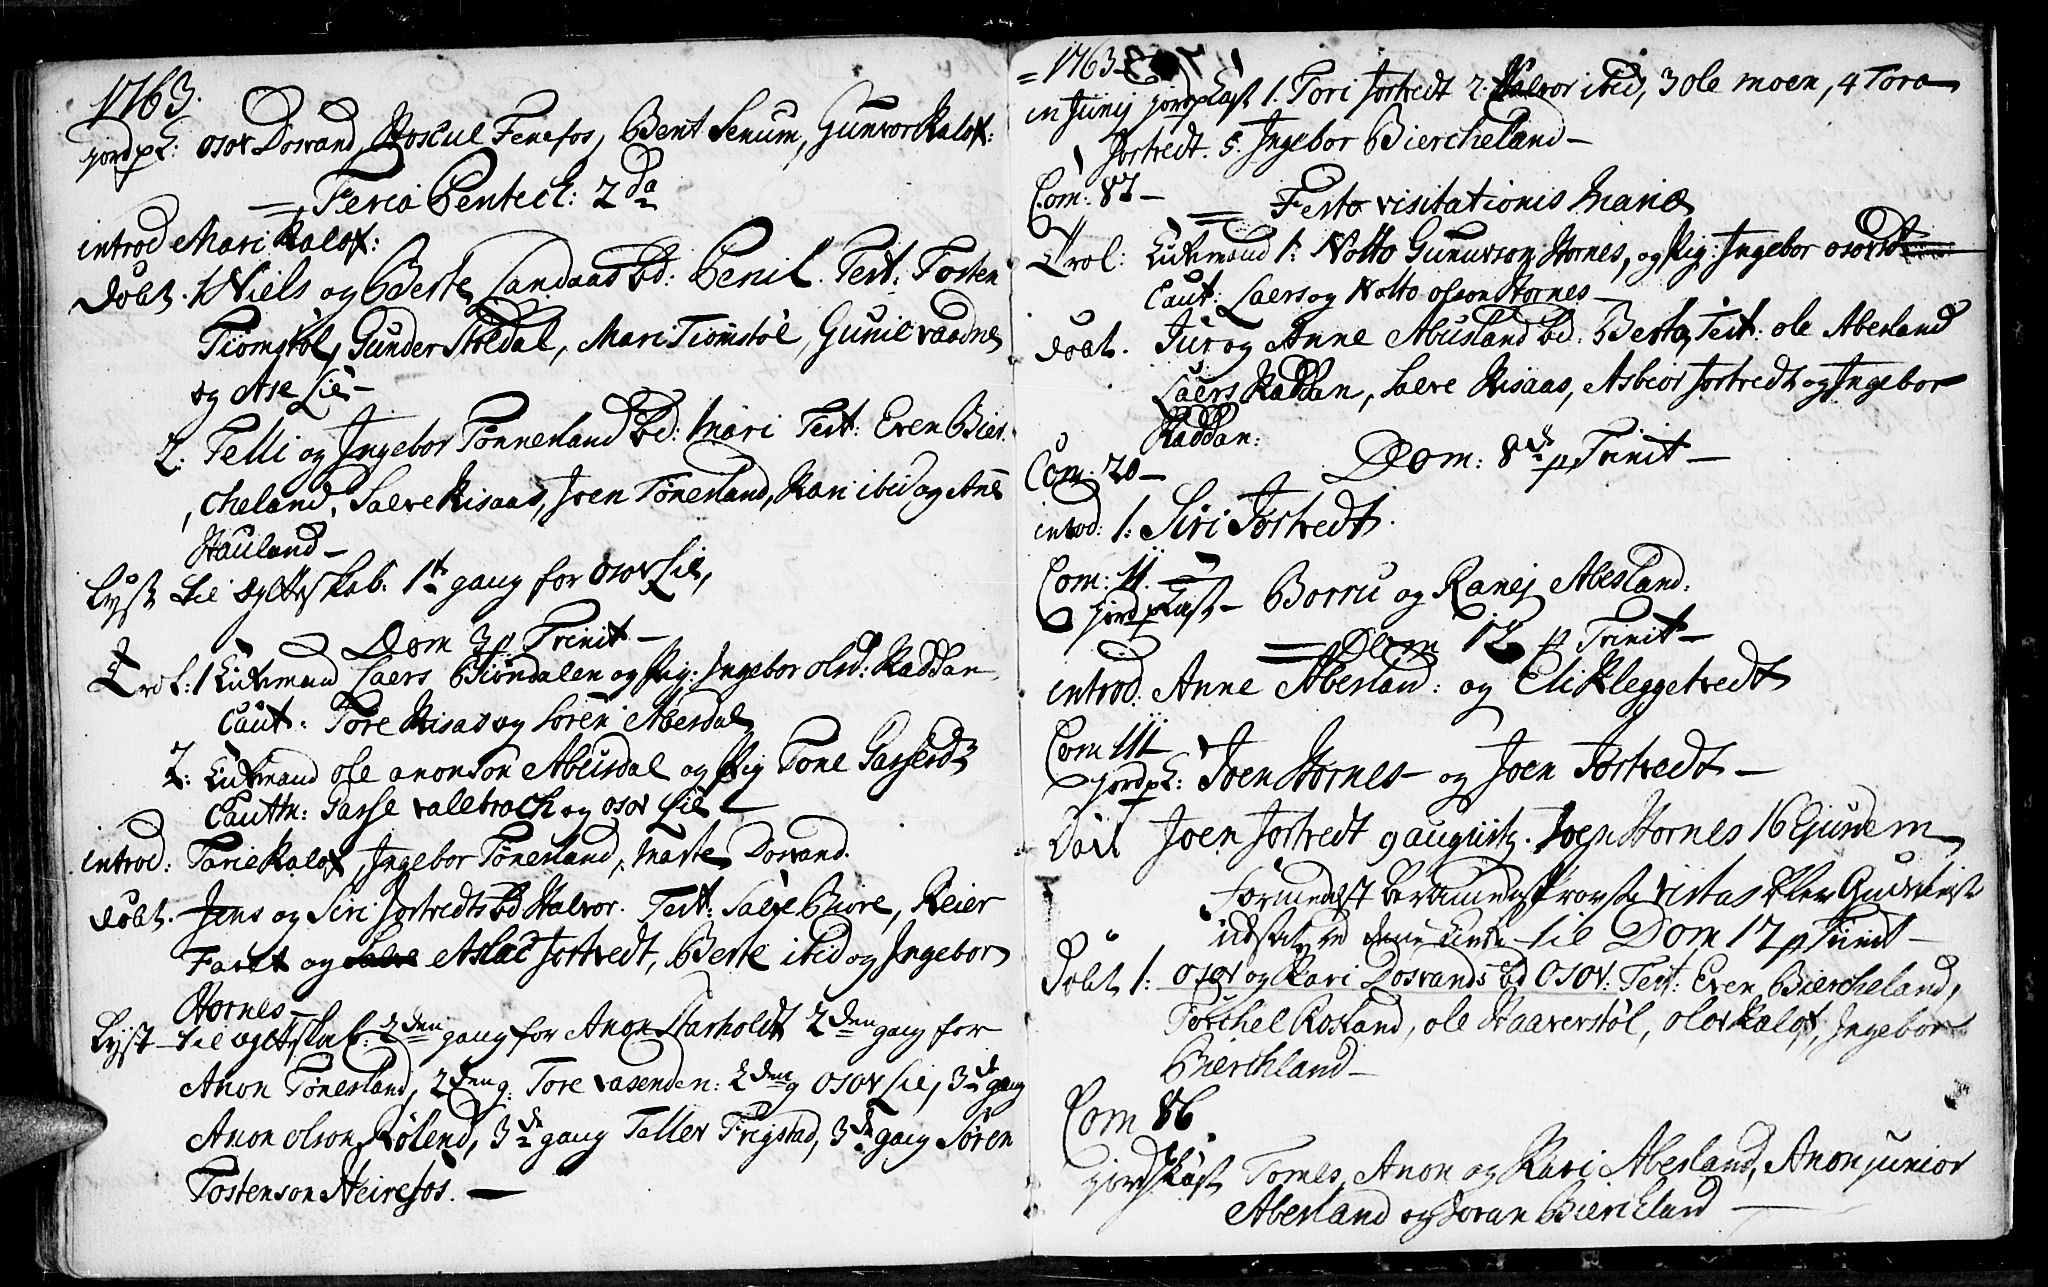 1763.
jordpk: Osov Dosvand, Roskul Fenefos, Bent Senum, Gunvor Kalof:
= Feria Pentech: 2da
introd Mari Kalof:
Døbt. 1 Niels og Berte Landaas bd: Pernil. Test: Tosten
Tiomstøl, Gunder Stedal, Mari Tiomstøl, Gunil
og Ase Lie –
2. Telli og Ingebor Tønnesland bd: Mari Test: Even Bier-
cheland, Salve Risaas, Joen Tønesland, Kari ibid og Ane
Hauland –
Lyst til Egtteskab. 1te gang for Osov Lie,
Dom 3 p Trinit –
Trol: 1 Lutmand Laers Biøndalen og Pig: Ingebor Olsd: Raddan
Caut: Tore Risas og Søren Abusdal
2: Lutmand Ole Anonson Abusdal og Pig Tone
Cautm: Tarje Valebroch og Osov Lie –
introd: Tarie Kalof, Ingebor Tønesland, Marte Dosvand.
Døbt. Jens og Siri Jortvedts bd Halvor. Test: Salve Biore, Reier
Faret og Aslac Jortvedt, Berte ibid og Ingebor
Hornes –
Lyst – til egttskab: 2den gang for Anon Starholdt 2den gang for
Anon Tønesland, 2den g: Tore Vasenden: 2den g Osov Lie, 3de gang
Anon Olson Røiend, 3de gang Tellev Frigstad, 3de gang Søren
Tostenson Heirefos. –
= 1763 –
in Junij jordpkast 1. Tori Jortvedt 2. Halvor ibid, 3 Ole Moen, 4 Tora
Jortvedt. 5. Ingebor Biercheland –
Com: 87 –
= Festo visitationis Mariæ
Trol: Lutmand 1: Notto Gunuvson Hornes, og Pig: Ingebor Osovsd
Caut: Laers og Notto Olson Hornes –
Døbt. Jur og Anne Abusland bd: Berta, Test: Ole Abesland
Laers Raddan, Salve Risaas, Asbior Jortvedt og Ingebor
Raddan:
Dom: 8de p Trinit –
Com: 20 –
introd: 1: Siri Jortvedt.
Com: 11. –
jordpkast – Borru og Ranej Abesland:
= Dom 12 p Trinit –
introd. Anne Abesland: og Eli Kleggetvedt
Com 111
jordpk: Joen Hornes – og Joen Jortvedt –
Joen Jortvedt 9 augusti. Joen Hornes 16 ejusdem
Formedelst Prouste Visitas blev Gudstieneste
udsat til Dom 17 p Trinit –
Døbt 1: Osov og Kari Dosvands bd Osov: Test: Even Biercheland,
Torchel Rosland, Ole Haaverstøl, Olov Kalof, Ingebor
Bierchland –
Com 86
jordpkast Tomes, Anon og Kari Abesland, Anon junior
Abesland og Joran Biercheland –